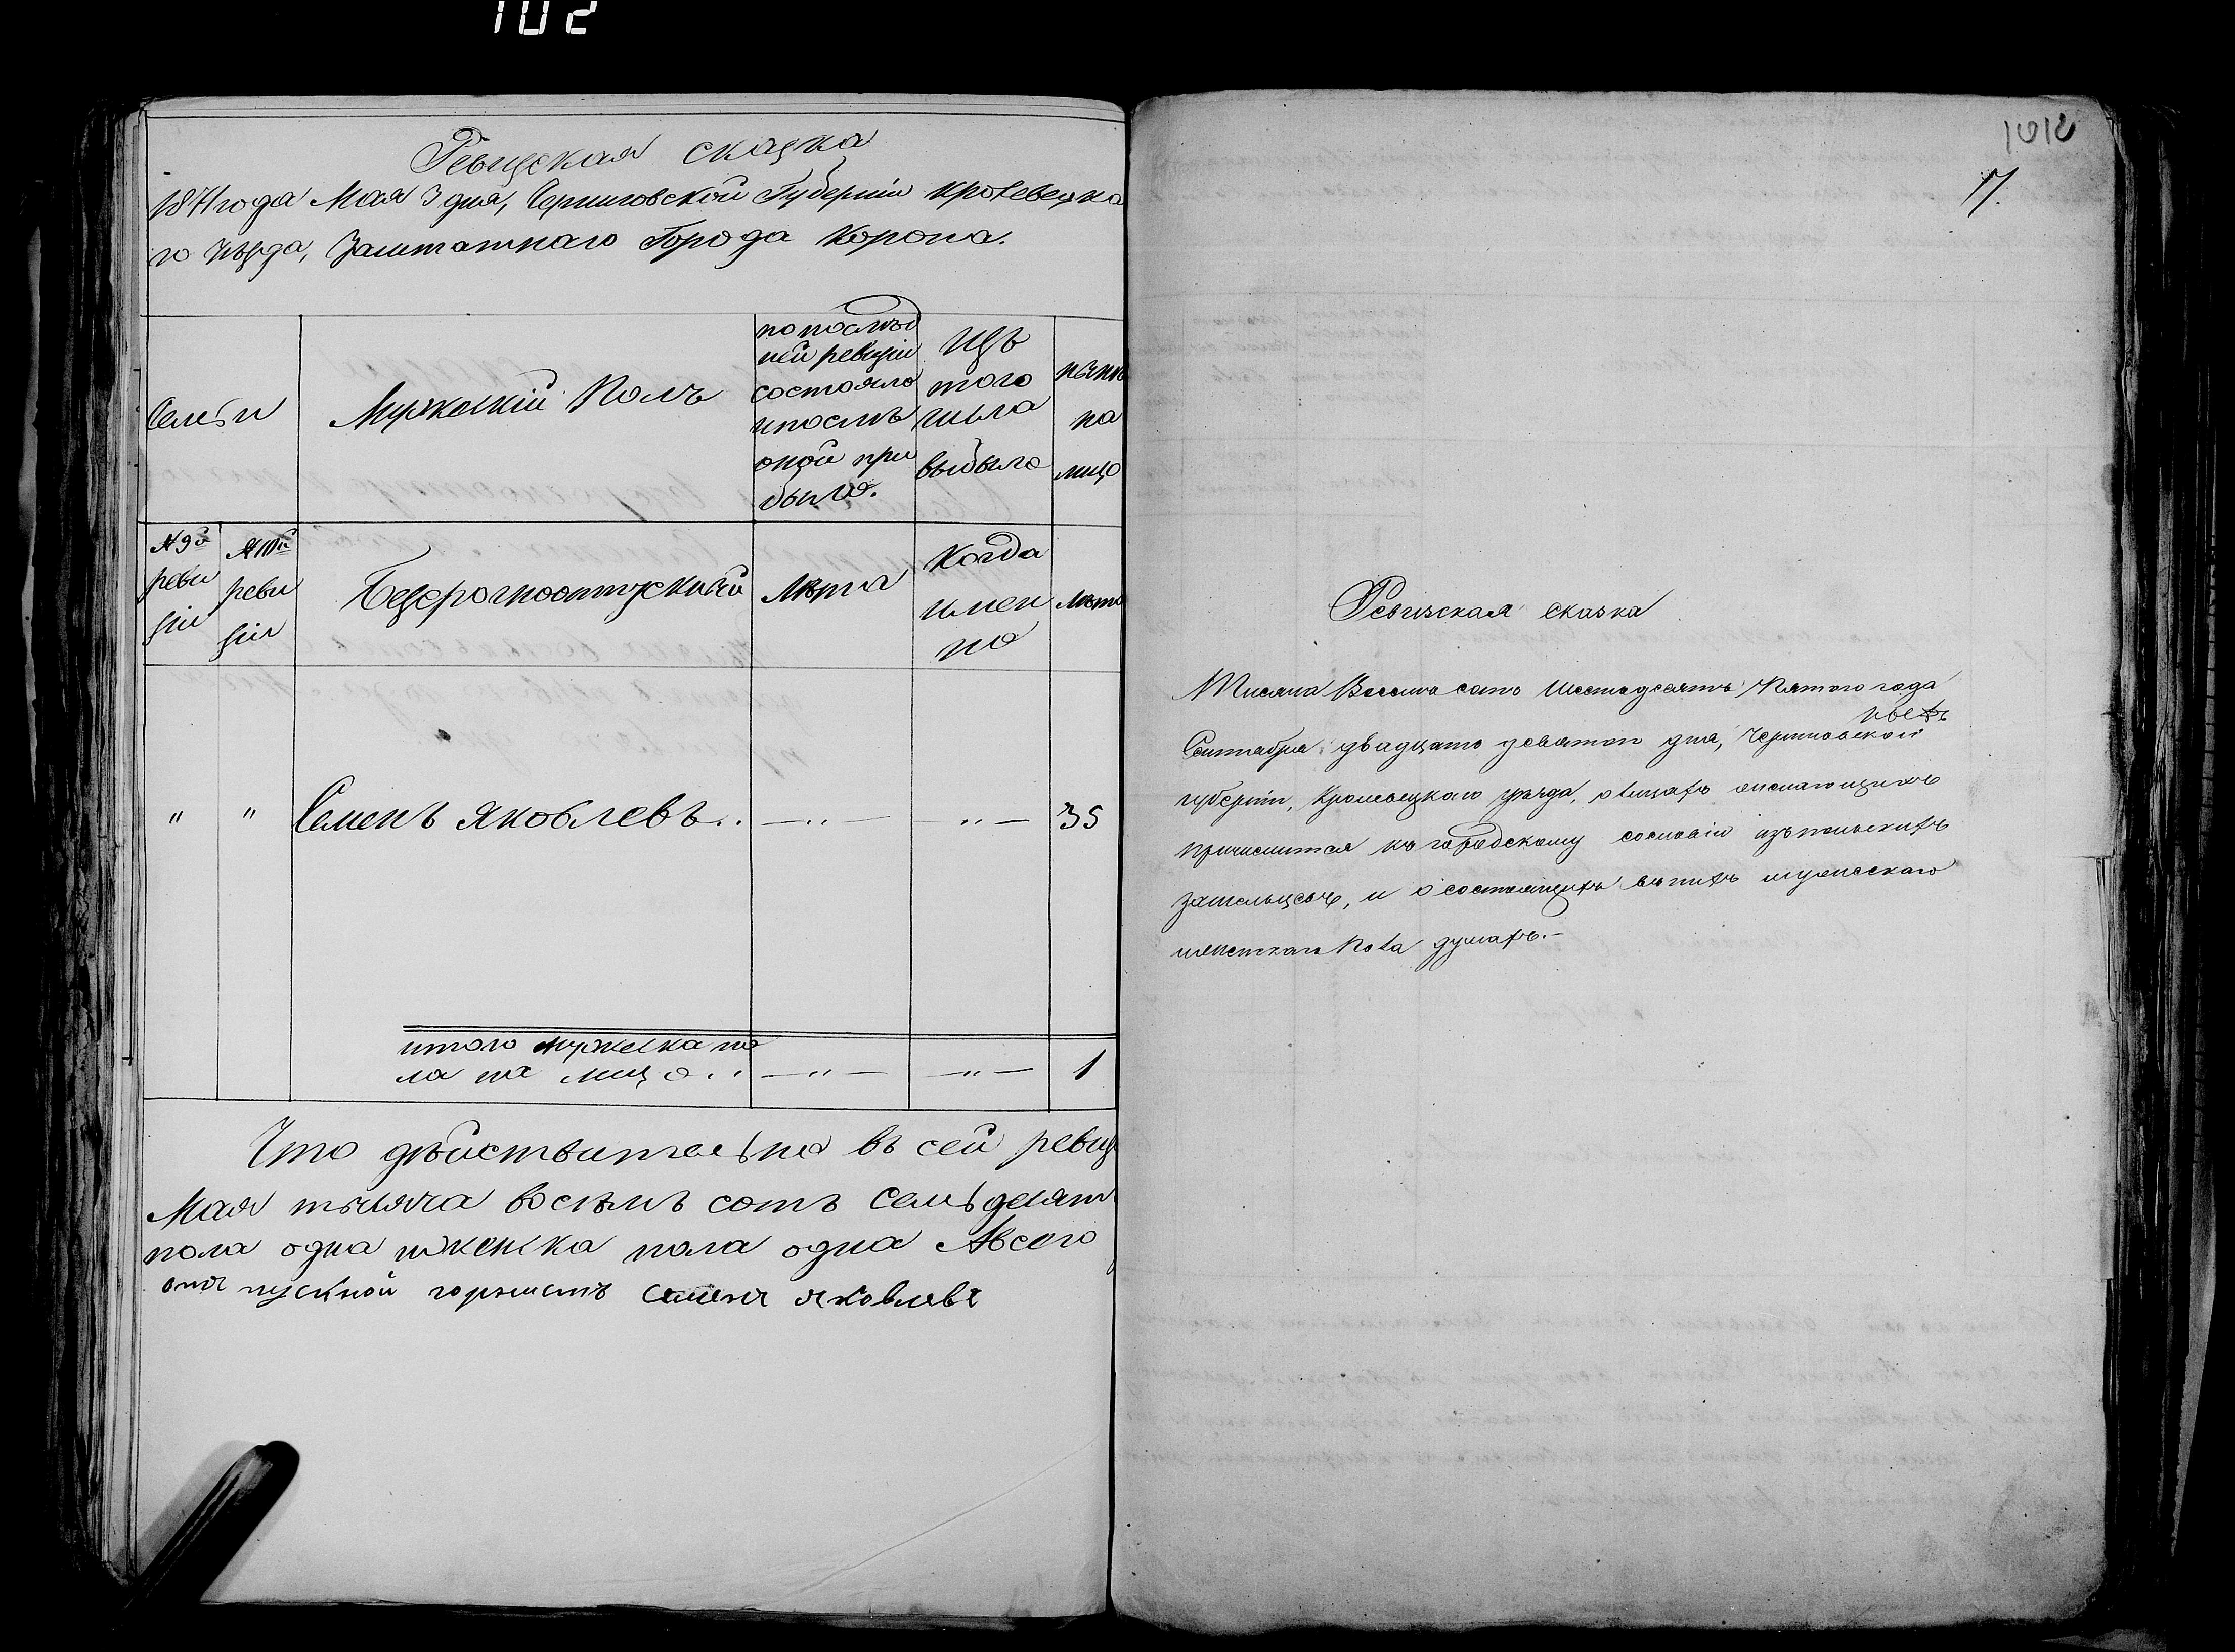 102
Ревизская сказка
1871 года Мая 3 дня, Черниговской Губерніи Кролевецка
го Уѣзда, Заштатнаго Города Коропа.
Семьи
Мужескій Полъ
по послѣд
ней ревизіи
состояло
и послѣ
оной при
было.
Изъ
того
числа
выбыло
нынѣ
на
лицо
№ 9й
реви
зіи
№ 10й
реви
зіи
Безсрочноотпускный
Лѣта
Когда
имен
но
Лѣта
" " Семенъ Яковлевъ .. — " — " — 35
итого мужеска по
ла на лицо .. — " — — " — 1
Что дѣйствительно въ сей ревиз
Мая тысяча восемь сотъ семьдесят
пола одна и женска пола одна А всего
отпускной Семенъ Яковлевъ
1012
17.
Ревизская сказка
Тысяча Восемь сотъ Шестьдесятъ Пятого года
Сентября двадцать девятого дня, Черниговской
губерніи, Кролевецкаго уѣзда, о лицахъ
причислится къ городскому сословію изъ польскихъ
и о состоящихъ въ нихъ мужескаго
женскаго пола душахъ.—